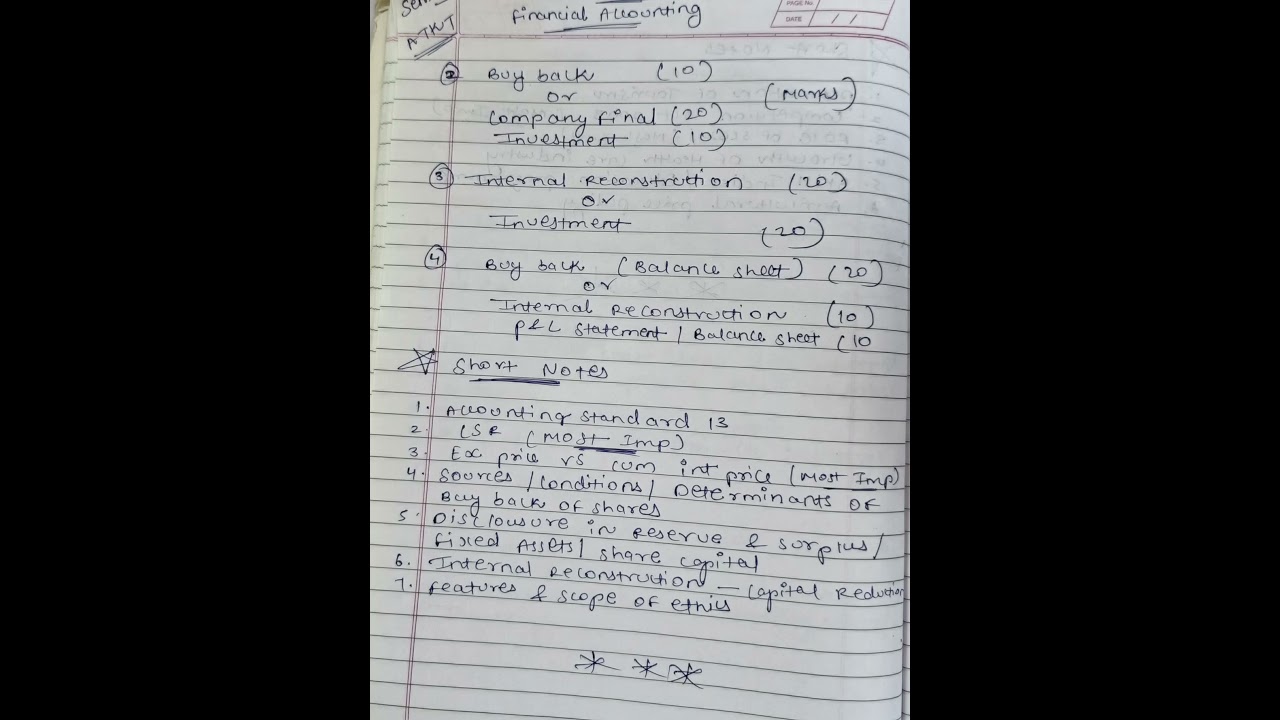 Sem
ATKT
Financial Accounting
PAGE No
DATE / /
② Buy back (10)
or (Marks)
Company Final (20)
Investment (10)
③ Internal Reconstruction (20)
or
Investment (20)
④ Buy back (Balance sheet) (20)
or
Internal Reconstruction (10)
P&L statement / Balance sheet (10
Short Notes
1. Accounting standard 13
2. CSR (Most Imp)
3. Ex price vs cum int price (Most Imp)
4. Sources / conditions / Determinants of
Buy back of shares
5. Disclousure in Reserve & surplus /
fixed Assets / share capital
6. Internal Reconstruction – Capital Reduction
7. features & scope of ethics